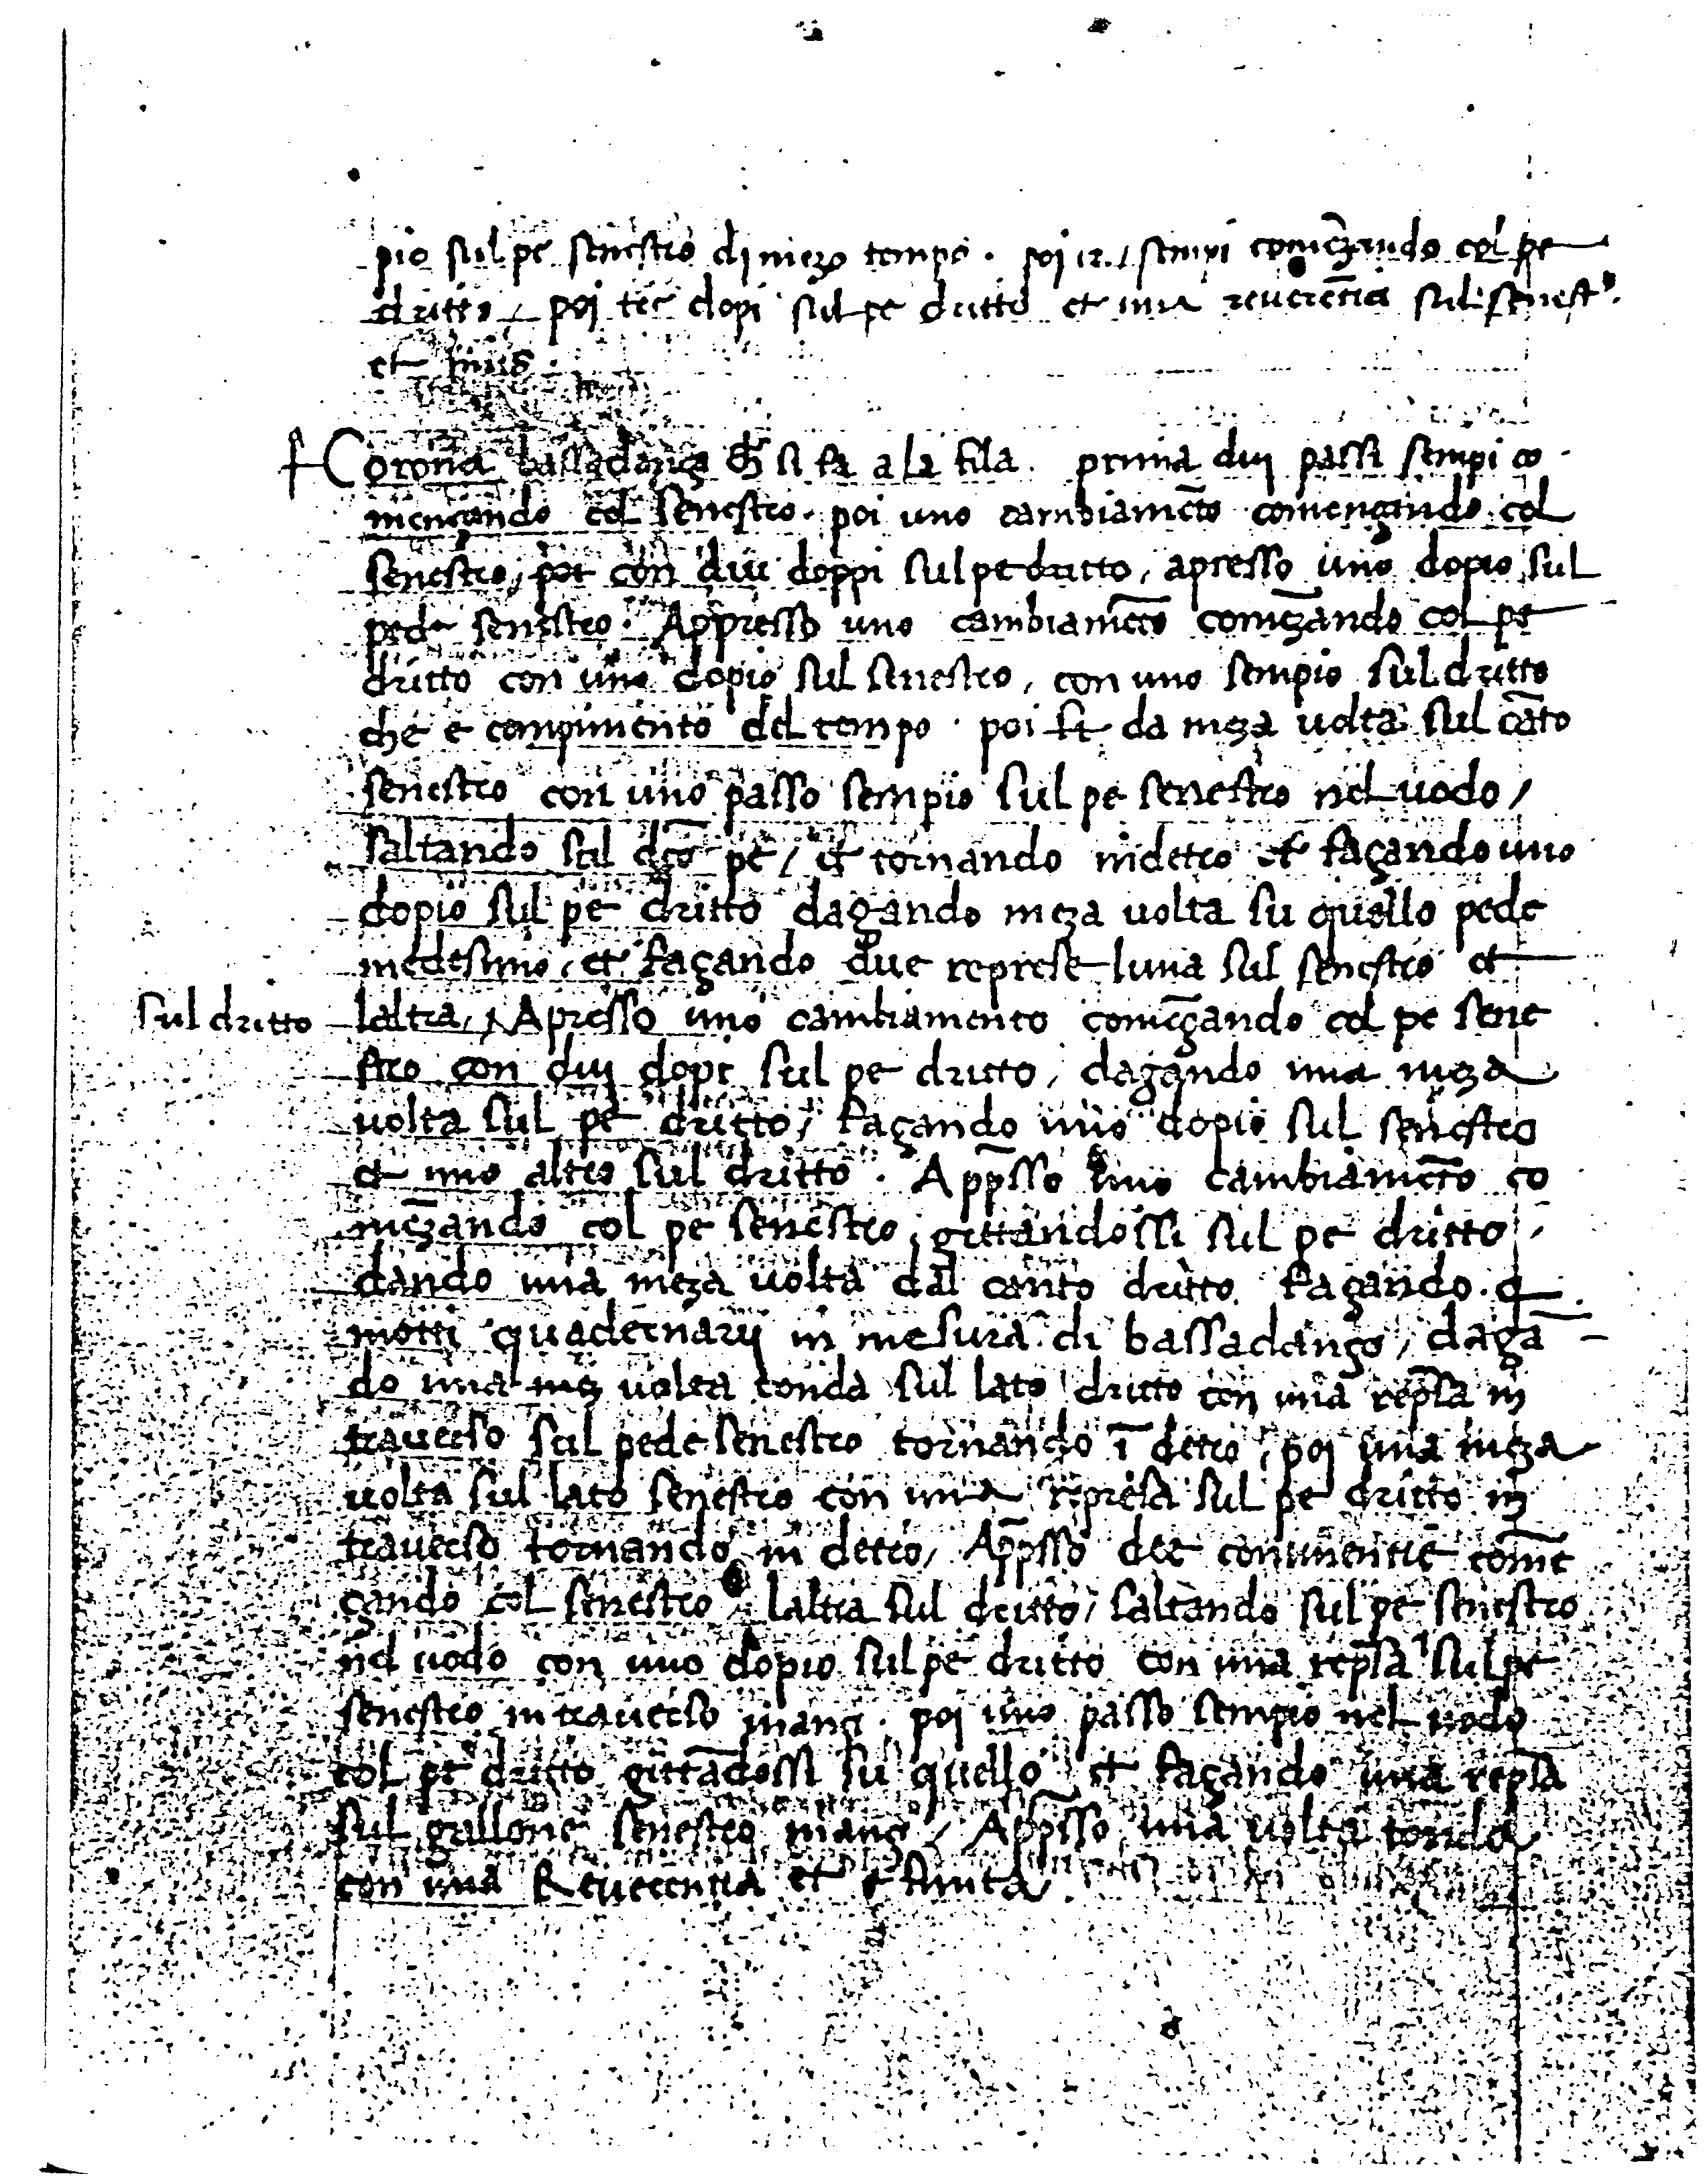 pio sul pe senestro di mezo tempo. poi 12. sempi comēzando col pe
dritto, poi tre dopi sul pe dritto et una reverētia sul senestº.
et finis.
Corona bassadanza si fa a la fila. prima duj passi sempi co
mençando col senestro. poi uno cambiamēto començando col
senestro, con dui doppi sul pe dritto, apresso uno dopio sul
pede senestro. Appresso uno cambiamēto comēzando col pe
dritto con uno dopio sul senestro, con uno sempio sul dritto
che e compimento del tempo. poi da meza uolta sul cāto
senestro con uno passo sempio sul pe senestro nel uodo,
saltando sul dcō pe, et tornando indetro et façando uno
dopio sul pe dritto dagando meza uolta su quello pede
medesimo, et façando due represe luna sul senestro et
sul dritto
laltra, Apresso uno cambiamento comēçando col pe sene
stro con duj dopi sul pe dritto, dagando una meza
uolta sul pe dritto, façando uno dopio sul senestro
et uno altro sul dritto. Appsso uno cambiamēto co
mēzando col pe senestro, gittandossi sul pe dritto,
dando una meza uolta dal canto dritto façando
motti quadernarij in mesura di bassadanza, dagā
do una mez uolta tonda sul lato dritto con una repsa in
trauerso sul pede senestro tornando ī detro, poi una meza
uolta sul lato senestro con una represa sul pe dritto in
trauerso tornando in detro, Appsso doe continentie comē
çando col senestro laltra sul dritto, saltando sul pe senestro
nel uodo con uno dopio sul pe dritto con una repsa sul pe
senestro in trauerso inanç. poi uno passo sempio nel uodo
col pe dritto gittādossi su quello et façando una repsa
sul gallone senestro inanç, Appsso una uolta tonda
con una Reuerentia et e finita.